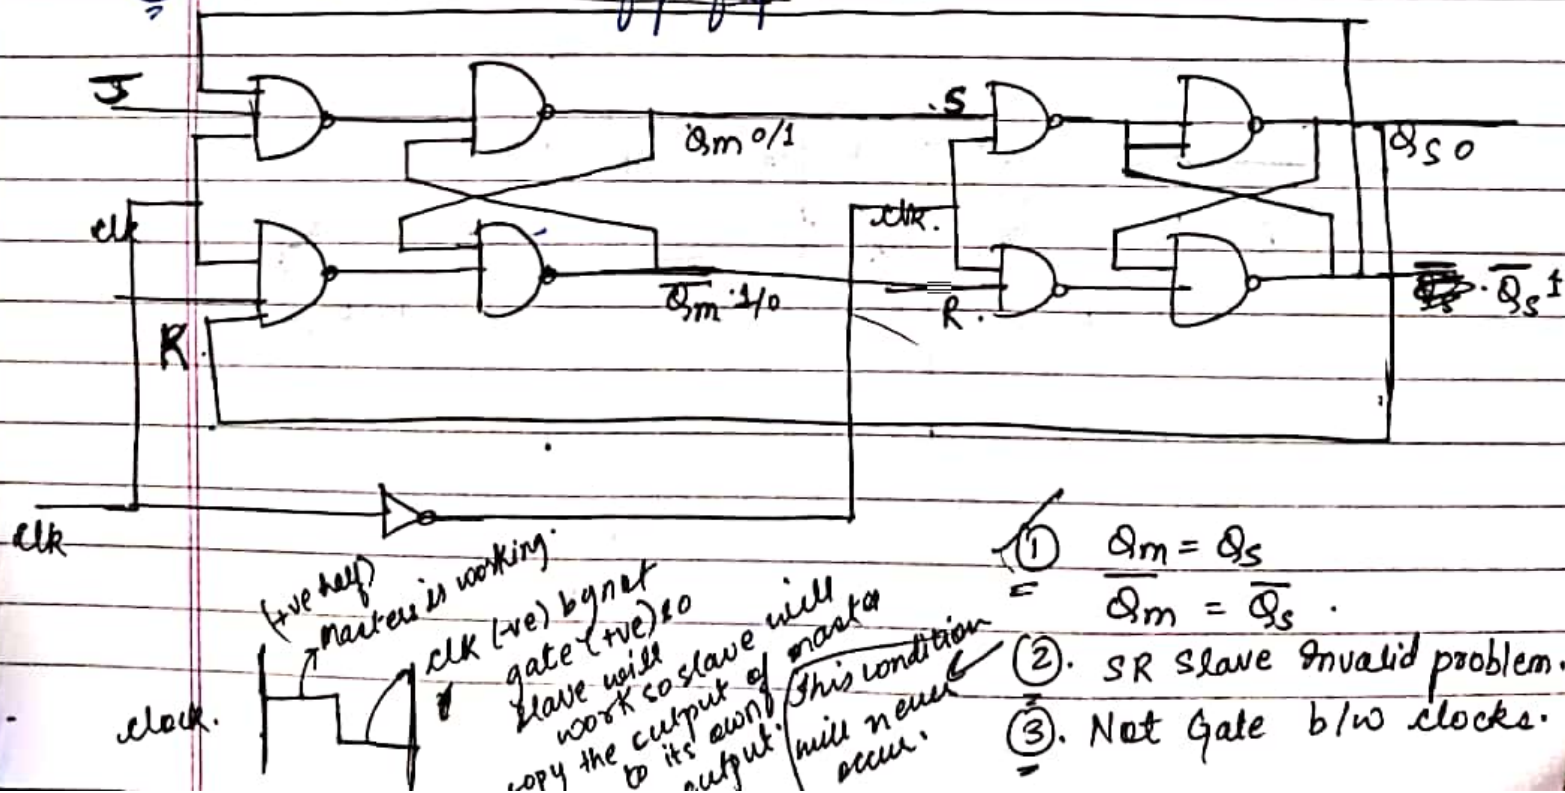 J
clk
R
Qm 0/1
Q̅m 1/0
S
clk.
R.
Qs 0
Q̅s 1
clk
(+ve half)
Master is working.
clock.
clk (-ve) by not
gate (+ve) so
slave will
work so slave will
copy the output of master
to its own
output.
This condition
will never
occur.
① Qm = Qs
Q̅m = Q̅s .
②. SR Slave Invalid problem.
③. Not Gate b/w clocks.